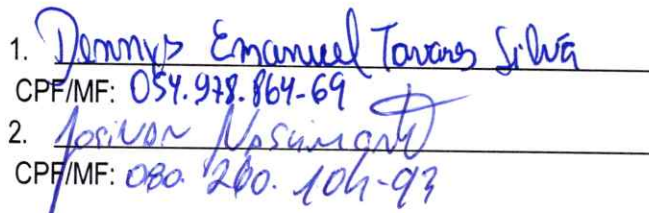 1. Dennys Emanuel Tavares Silva
CPF/MF: 054.978.864-69
2. Josivan Nascimento
CPF/MF: 080.260.104-93